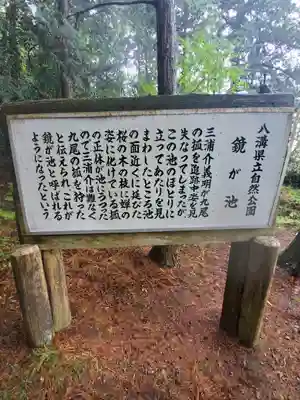 八溝県立自然公園
鏡が池
三浦介義明が九尾
の狐を追跡中姿を見
失ってしまったが
この池のほとりに
立ってあたりを見
まわしたところ池
の面近くに延びた
桜の木の枝に蝉の
姿に化けている狐
の正体が池にうつった
ので三浦介は難なく
九尾の狐を狩った
と伝えられこれが
鏡が池と呼ばれる
ようになったという